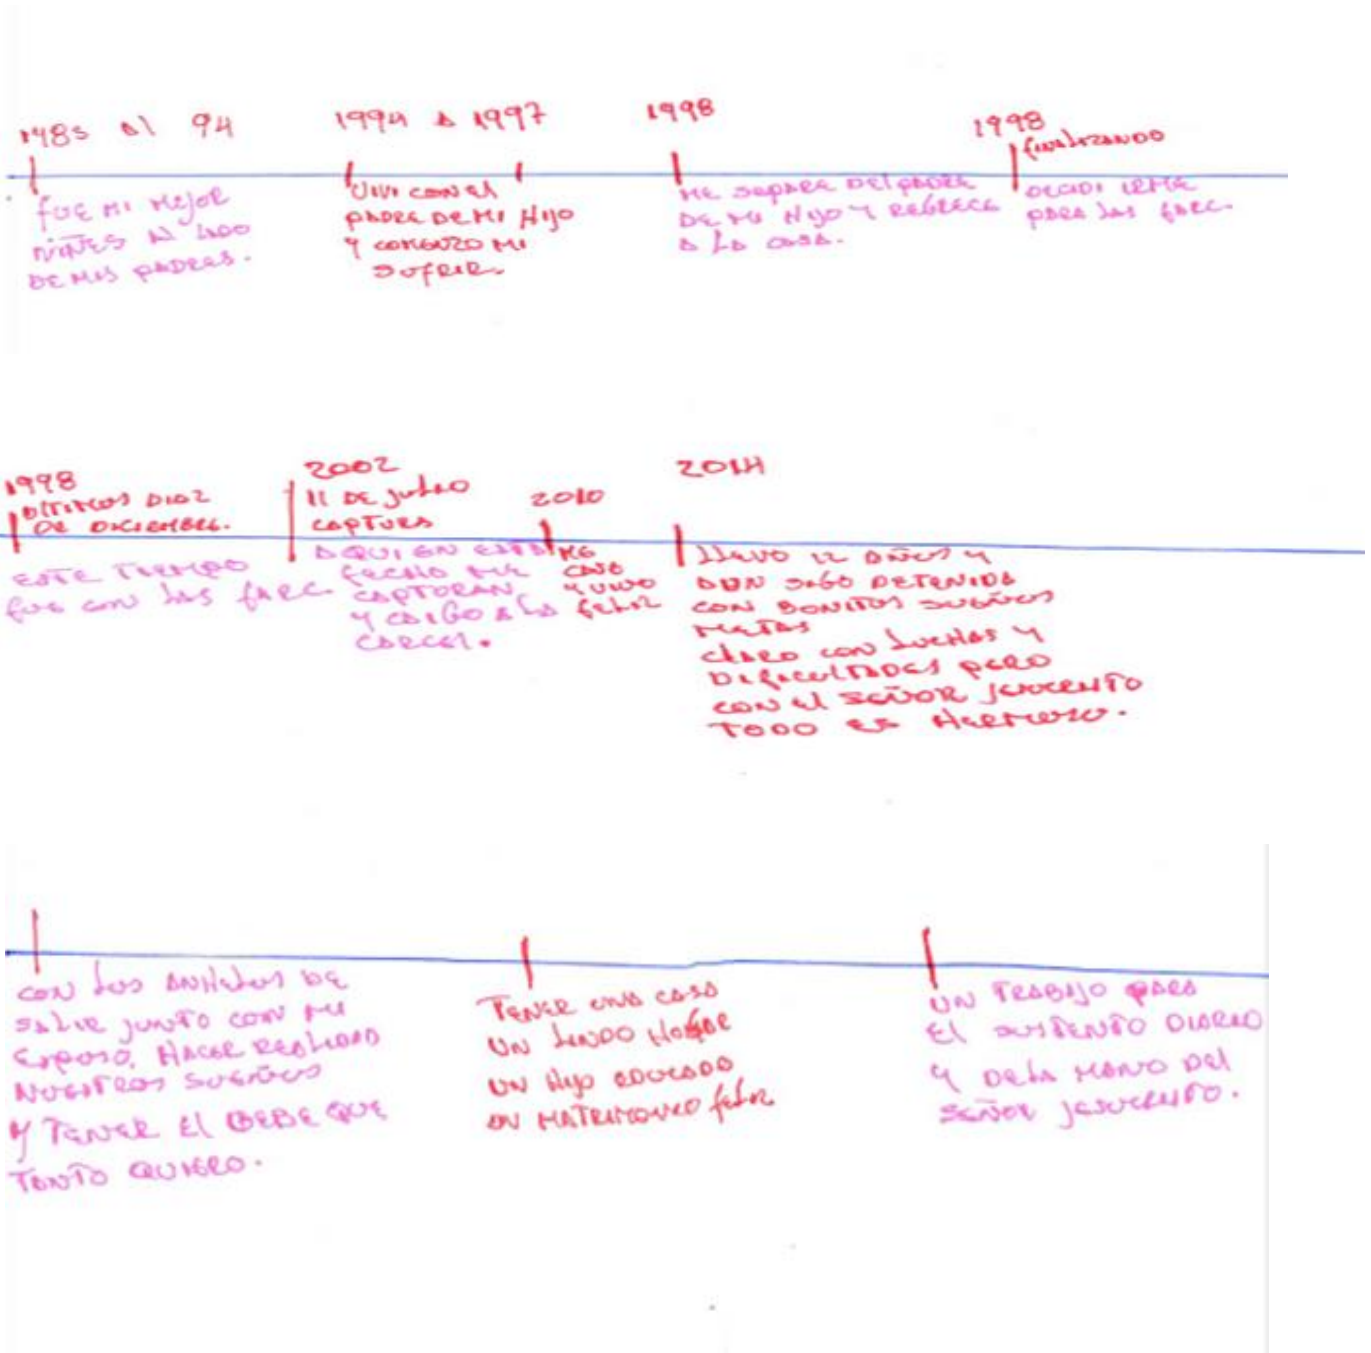 1985 al 94
FUE MI MEJOR
NIÑES AL LADO
DE MIS PADRES.
1994 A 1997
VIVI CON EL
PADRE DE MI HIJO
Y COMENZO MI
SUFRIR.
1998
ME SEPARE DEL PADRE
DE MI HIJO Y REGRECE
A LA CASA.
1998
finalizando
DECIDI IRME
PARA LAS FARC.
1998
ULTIMOS DIAZ
DE DICIEMBRE.
ESTE TIEMPO
FUE CON LAS FARC.
2002
11 DE JULIO
CAPTURA
AQUI EN ESTA
FECHA ME
CAPTURAN
Y CAIGO A LA
CARCEL.
2010
ME
CASO
Y VIVO
FELIZ
2014
LLEVO 12 AÑOS Y
AUN SIGO DETENIDA
CON BONITOS SUEÑOS
METAS
CLARO CON LUCHAS Y
DIFICULTADES PERO
CON EL SEÑOR JESUCRISTO
TODO ES HERMOSO.
CON LOS ANHELOS DE
SALIR JUNTO CON MI
ESPOSO, HACER REALIDAD
NUESTROS SUEÑOS
Y TENER EL BEBE QUE
TANTO QUIERO.
TENER UNA CASA
UN LINDO HOGAR
UN HIJO EDUCADO
UN MATRIMONIO FELIZ
UN TRABAJO PARA
EL SUSTENTO DIARIO
Y DE LA MANO DEL
SEÑOR JESUCRISTO.